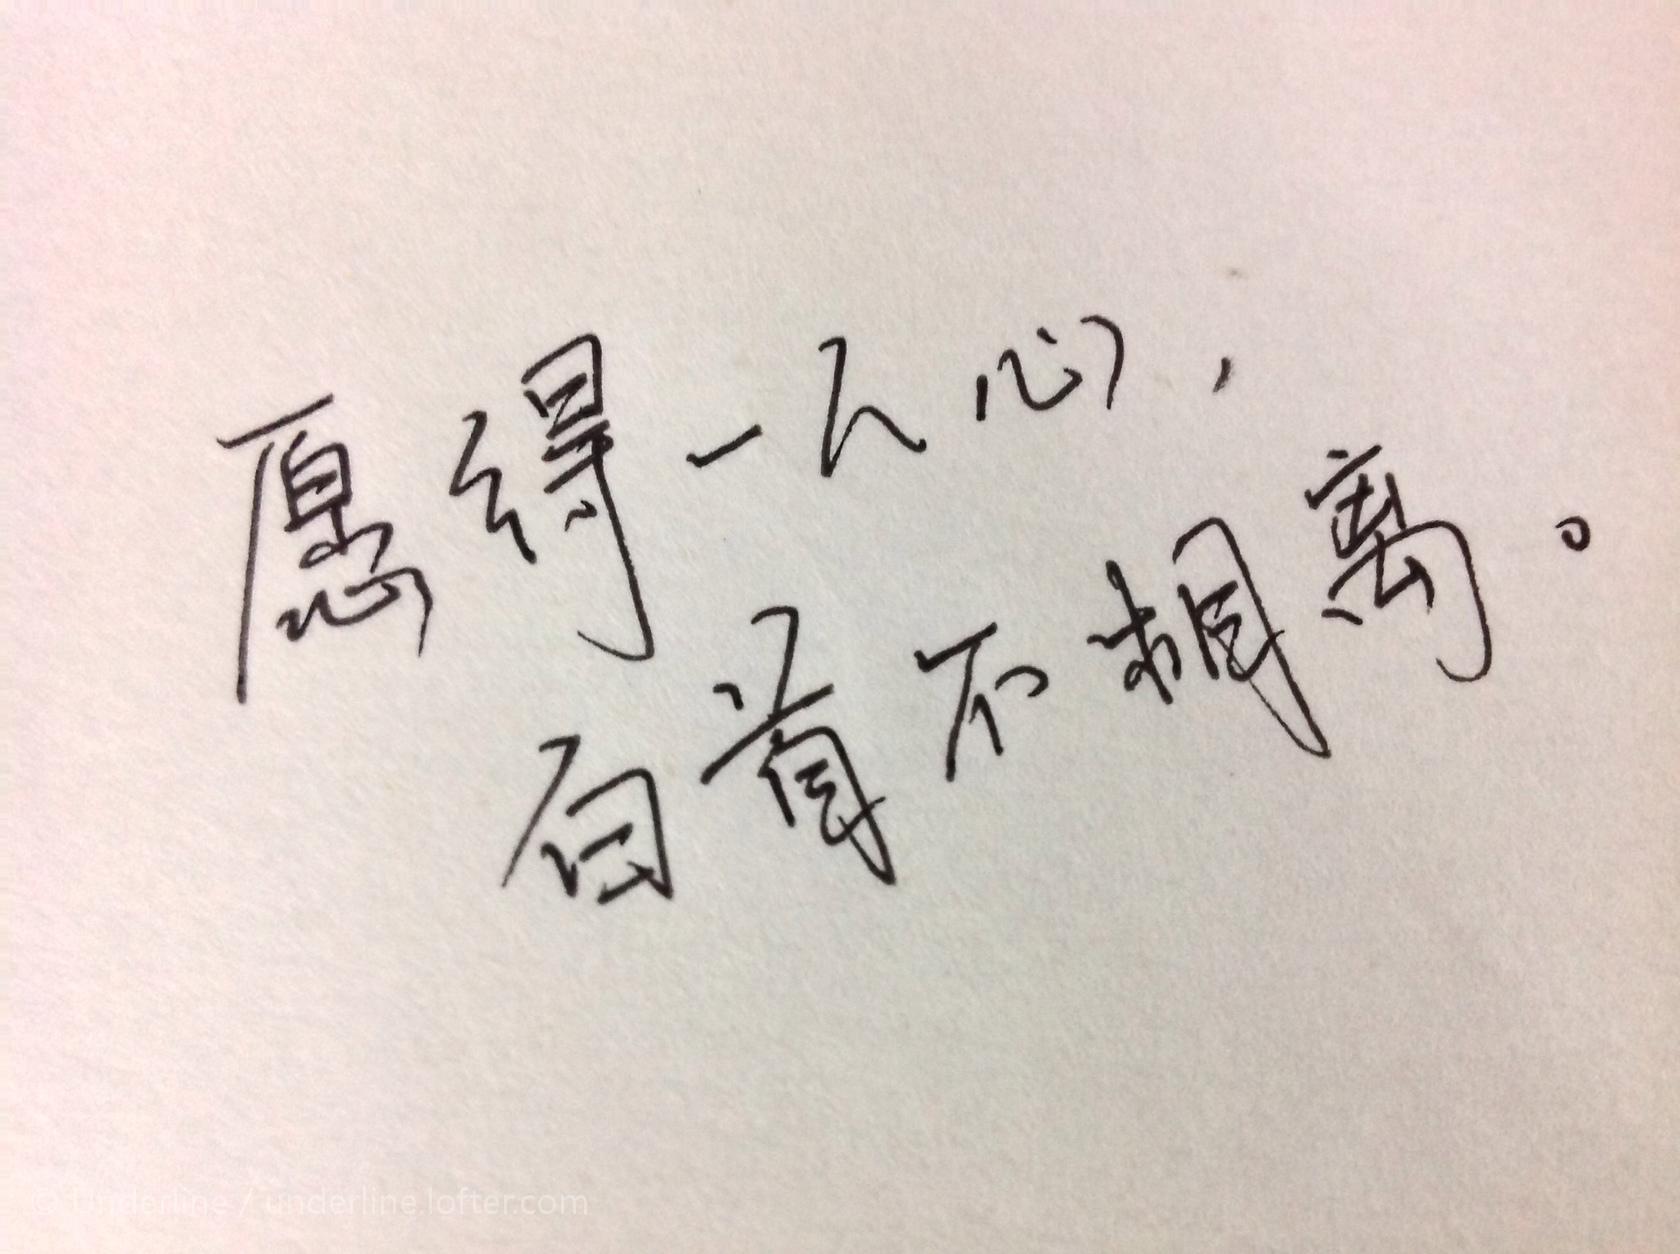 愿得一人心，
白首不相离。
© Underline / underline.lofter.com